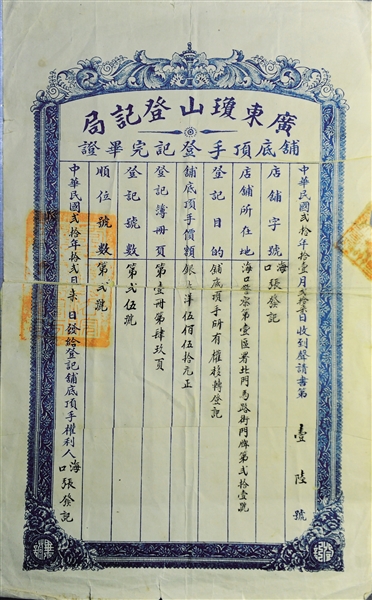 廣東瓊山登記局
舖底頂手登記完畢證
中華民國貳拾年拾壹月貳拾柒日收到聲請書第壹陸號
店舖字號 海口張發記
店舖所在地 海口警察第壹區署北門馬路街門牌第貳拾壹號
登記目的 舖底頂手所有權移轉登記
舖底頂手價額 銀大洋伍佰伍拾元正
登記簿冊頁 第壹冊第肆玖頁
登記號數 第貳伍號
順位號數 第貳號
中華民國貳拾年拾貳月 日發給登記舖底頂手權利人海口張發記